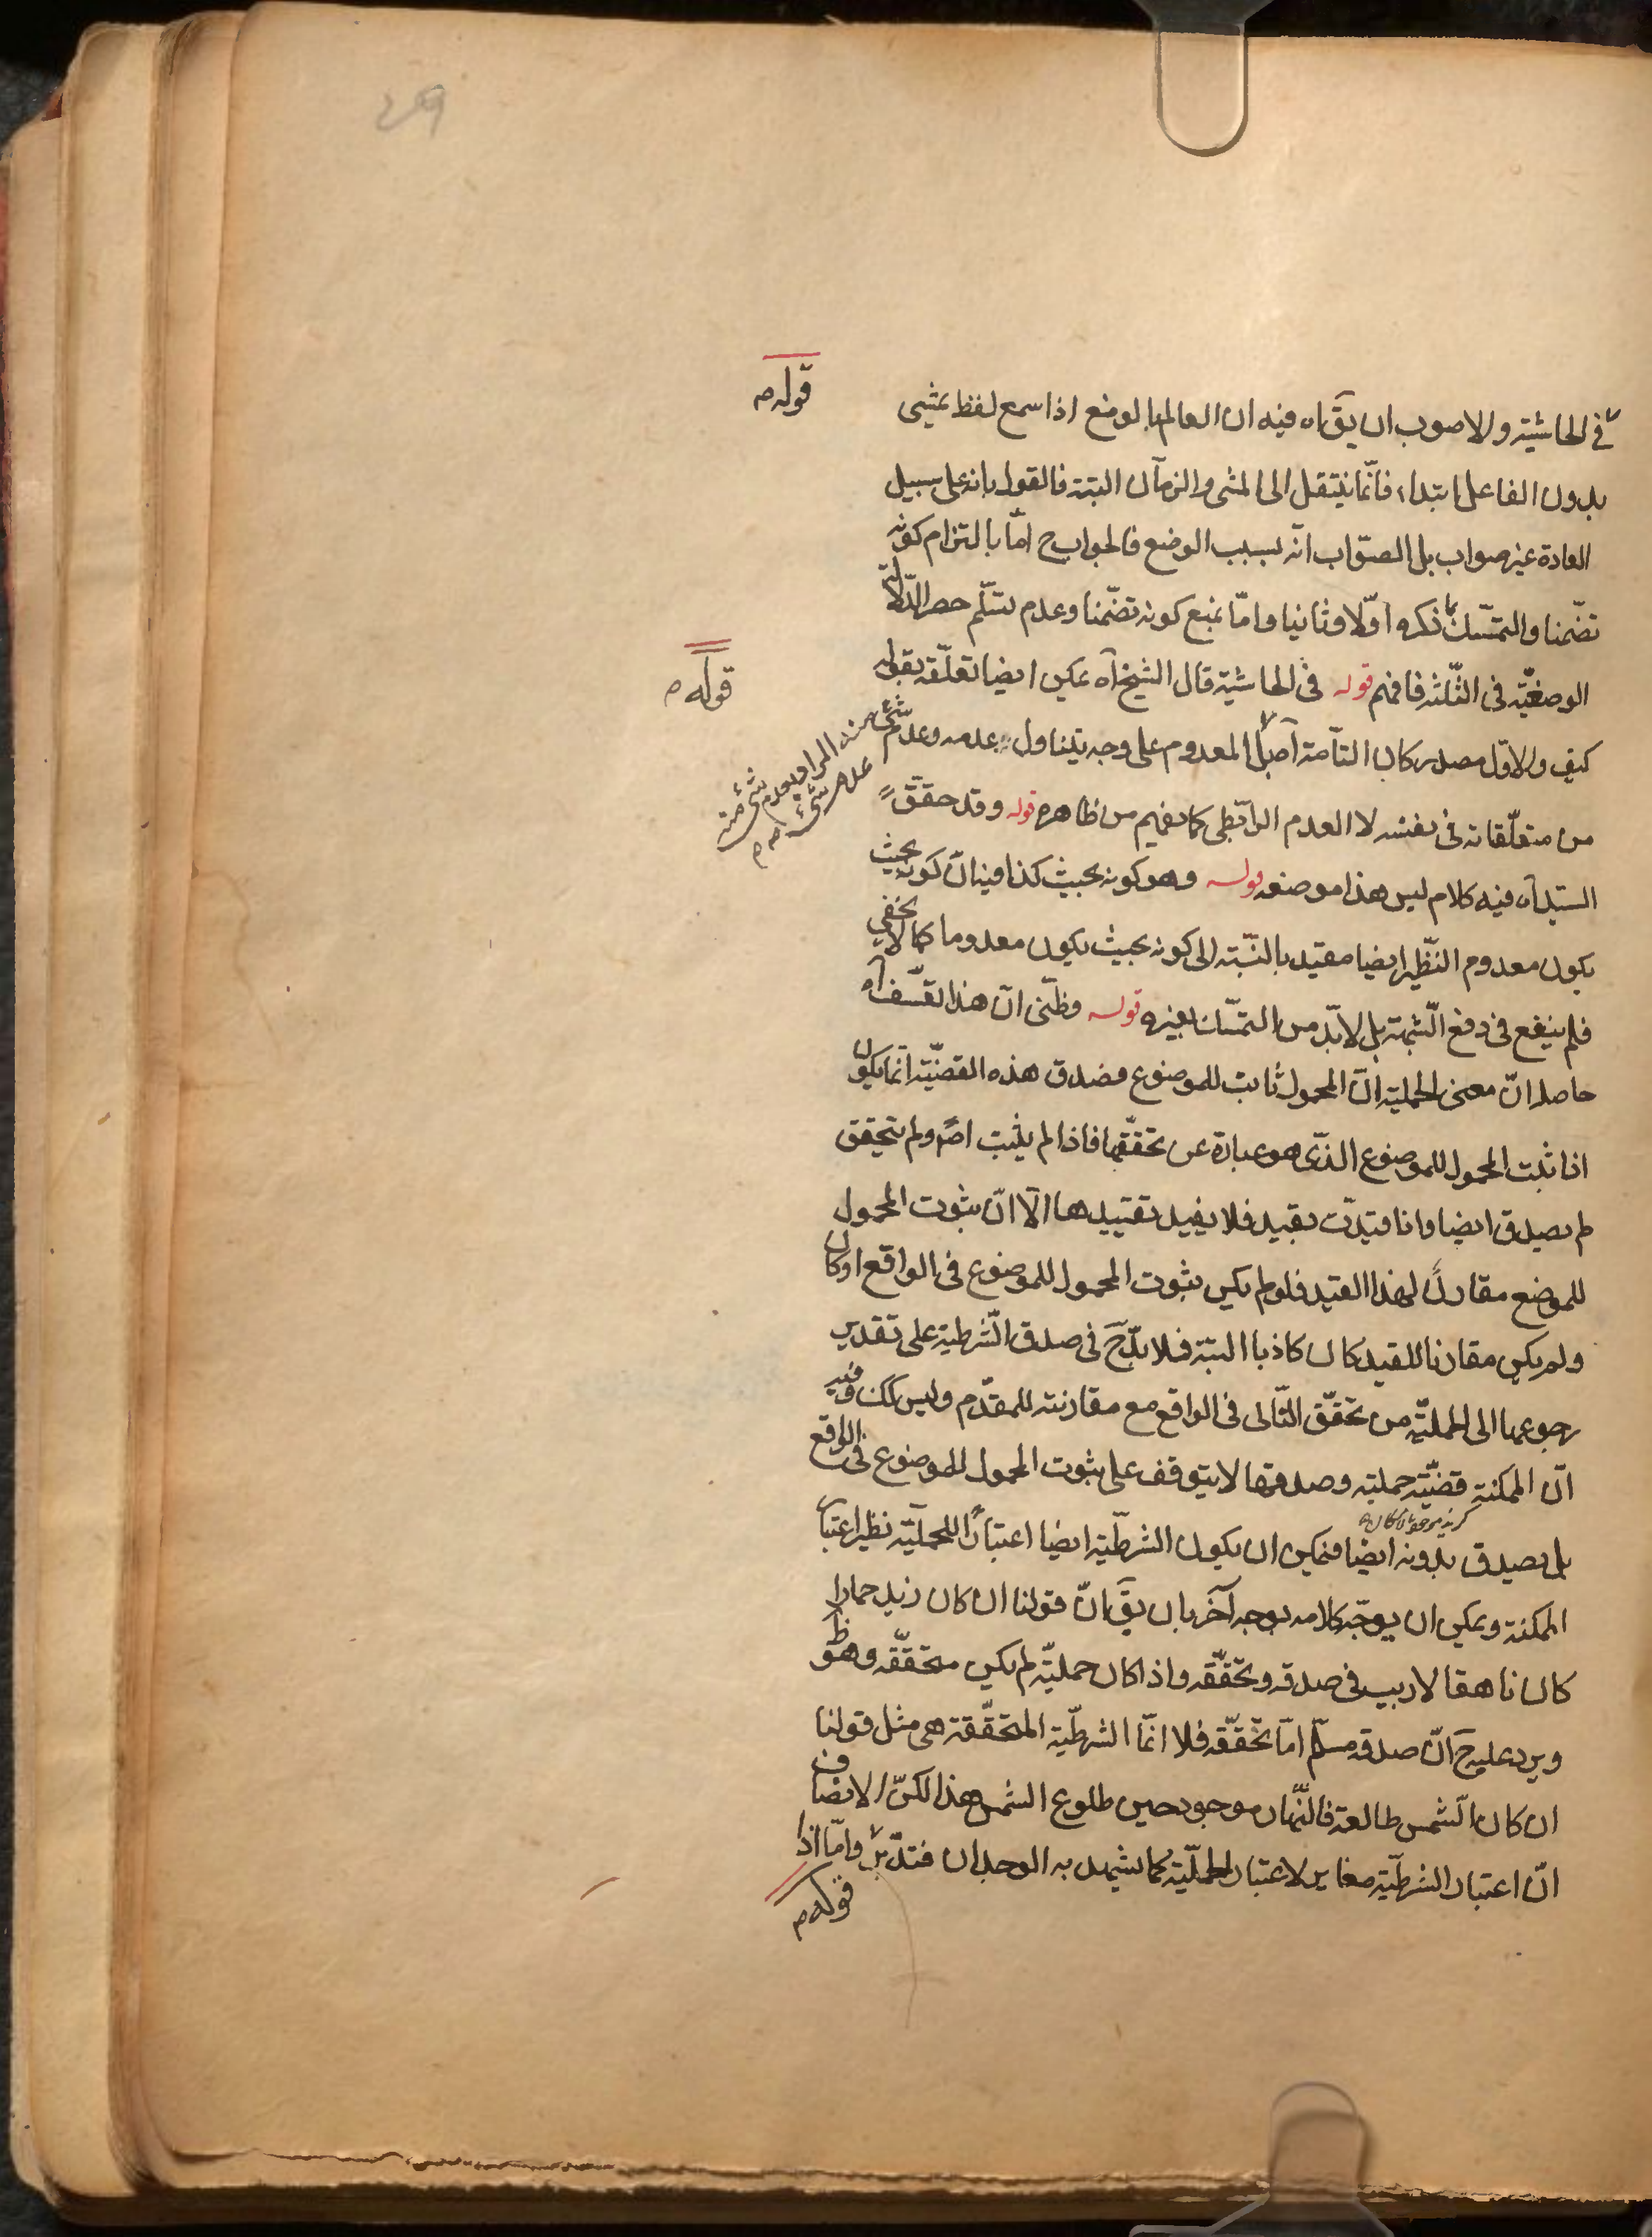 قوله م
في الحاشية والاصوب ان يقآ اه فيه ان العالم بالوضع اذا سمع لفظ يمشى
بدون الفاعل ابتداء فانّما ينتقل الى المشى والزمان البتة فالقول بانه على سبيل
العادة غير صواب بل الصّواب انه بسبب الوضع فالجواب ح امّا بالتزام كونه
تضّمنا والتمسّك بما ذكره اوّلا وثانيا وامّا بمنع كونه تضّمنا وعدم تسلّم حصر الدّلالة
قوله م
الوضعيّة فى الثّلثة فافهم قوله فى الحاشية قال الشيخ اه يمكن ايضا تعلّقه بقوله
كيف والاوّل مصدر كان التآمة المعدوم على وجه يتناول عدمه وعدم شئ منه
عدم شئ م
من متعلّقاته فى نفسه لا العدم الرابّطى كما يفهم من ظاهره قوله وقد حقّق
السّيد اه فيه كلام ليس هذا موضعه قوله وهو كونه بحيث كذا فيه انّ كونه بحيث
يكون معدوم النّظير ايضا مقيد بالنّسبة الى كونه بحيث يكون معدوما كما لا يخفى
فلم ينفع فى دفع الشّبهة بل لا بدّ من التمسّك بغيره قوله وظنّى انّ هذا تعسّف اه
حاصله انّ معنى الحملية انّ المحمول ثابت للموضوع فصدق هذه القضيّة انّما يكون
اذا ثبت المحمول للموضوع الذّى هو عبارة عن تحقّقها فاذا لم يثبت اصلا ولم يتحقق
لم يصدق ايضا واذا قيدّت بقيد فلا يفيد تقييدها الّا انّ ثبوت المحمول
للموضع مقارن لهذا القيد فلو لم يكن ثبوت المحمول للموضوع فى الواقع او كان
ولم يكن مقارنا للقيد كان كاذبا البتة فلا بدّ ح فى صدق الشّرطية على تقدير
رجوعها الى الحمليّة من تحقّق التّالى فى الواقع مع مقارنته للمقدّم وليس كك وفيه
انّ الممكنة قضيّة حملية وصدقها لا يتوقف على ثبوت المحمول للموضوع فى الواقع
بل يصدق بدونه ايضا فيمكن ان يكون الشرطيّة ايضا اعتبارا للحمليّة نظير اعتبار
الممكنة ويمكن ان يوجّه كلامه بوجه آخر بان يقآ انّ قولنا ان كان زيد حمارا
كان ناهقا لا ريب فى صدقه وتحقّقه واذا كان حمليّة لم يكن متحقّقه وهو ظ
ويرد عليه ح انّ صدقه مسلّم امّا تحقّقه فلا انّما الشرطيّة المتحقّقة هى مثل قولنا
ان كان الشّمس طالعة فالنّهار موجود حين طلوع الشمس هذا لكنّ الانصاف
انّ اعتبار الشرطيّة مغاير لاعتبار الحمليّة كما يشهد به الوجدان فتدّبر وامّا اذا
قوله م